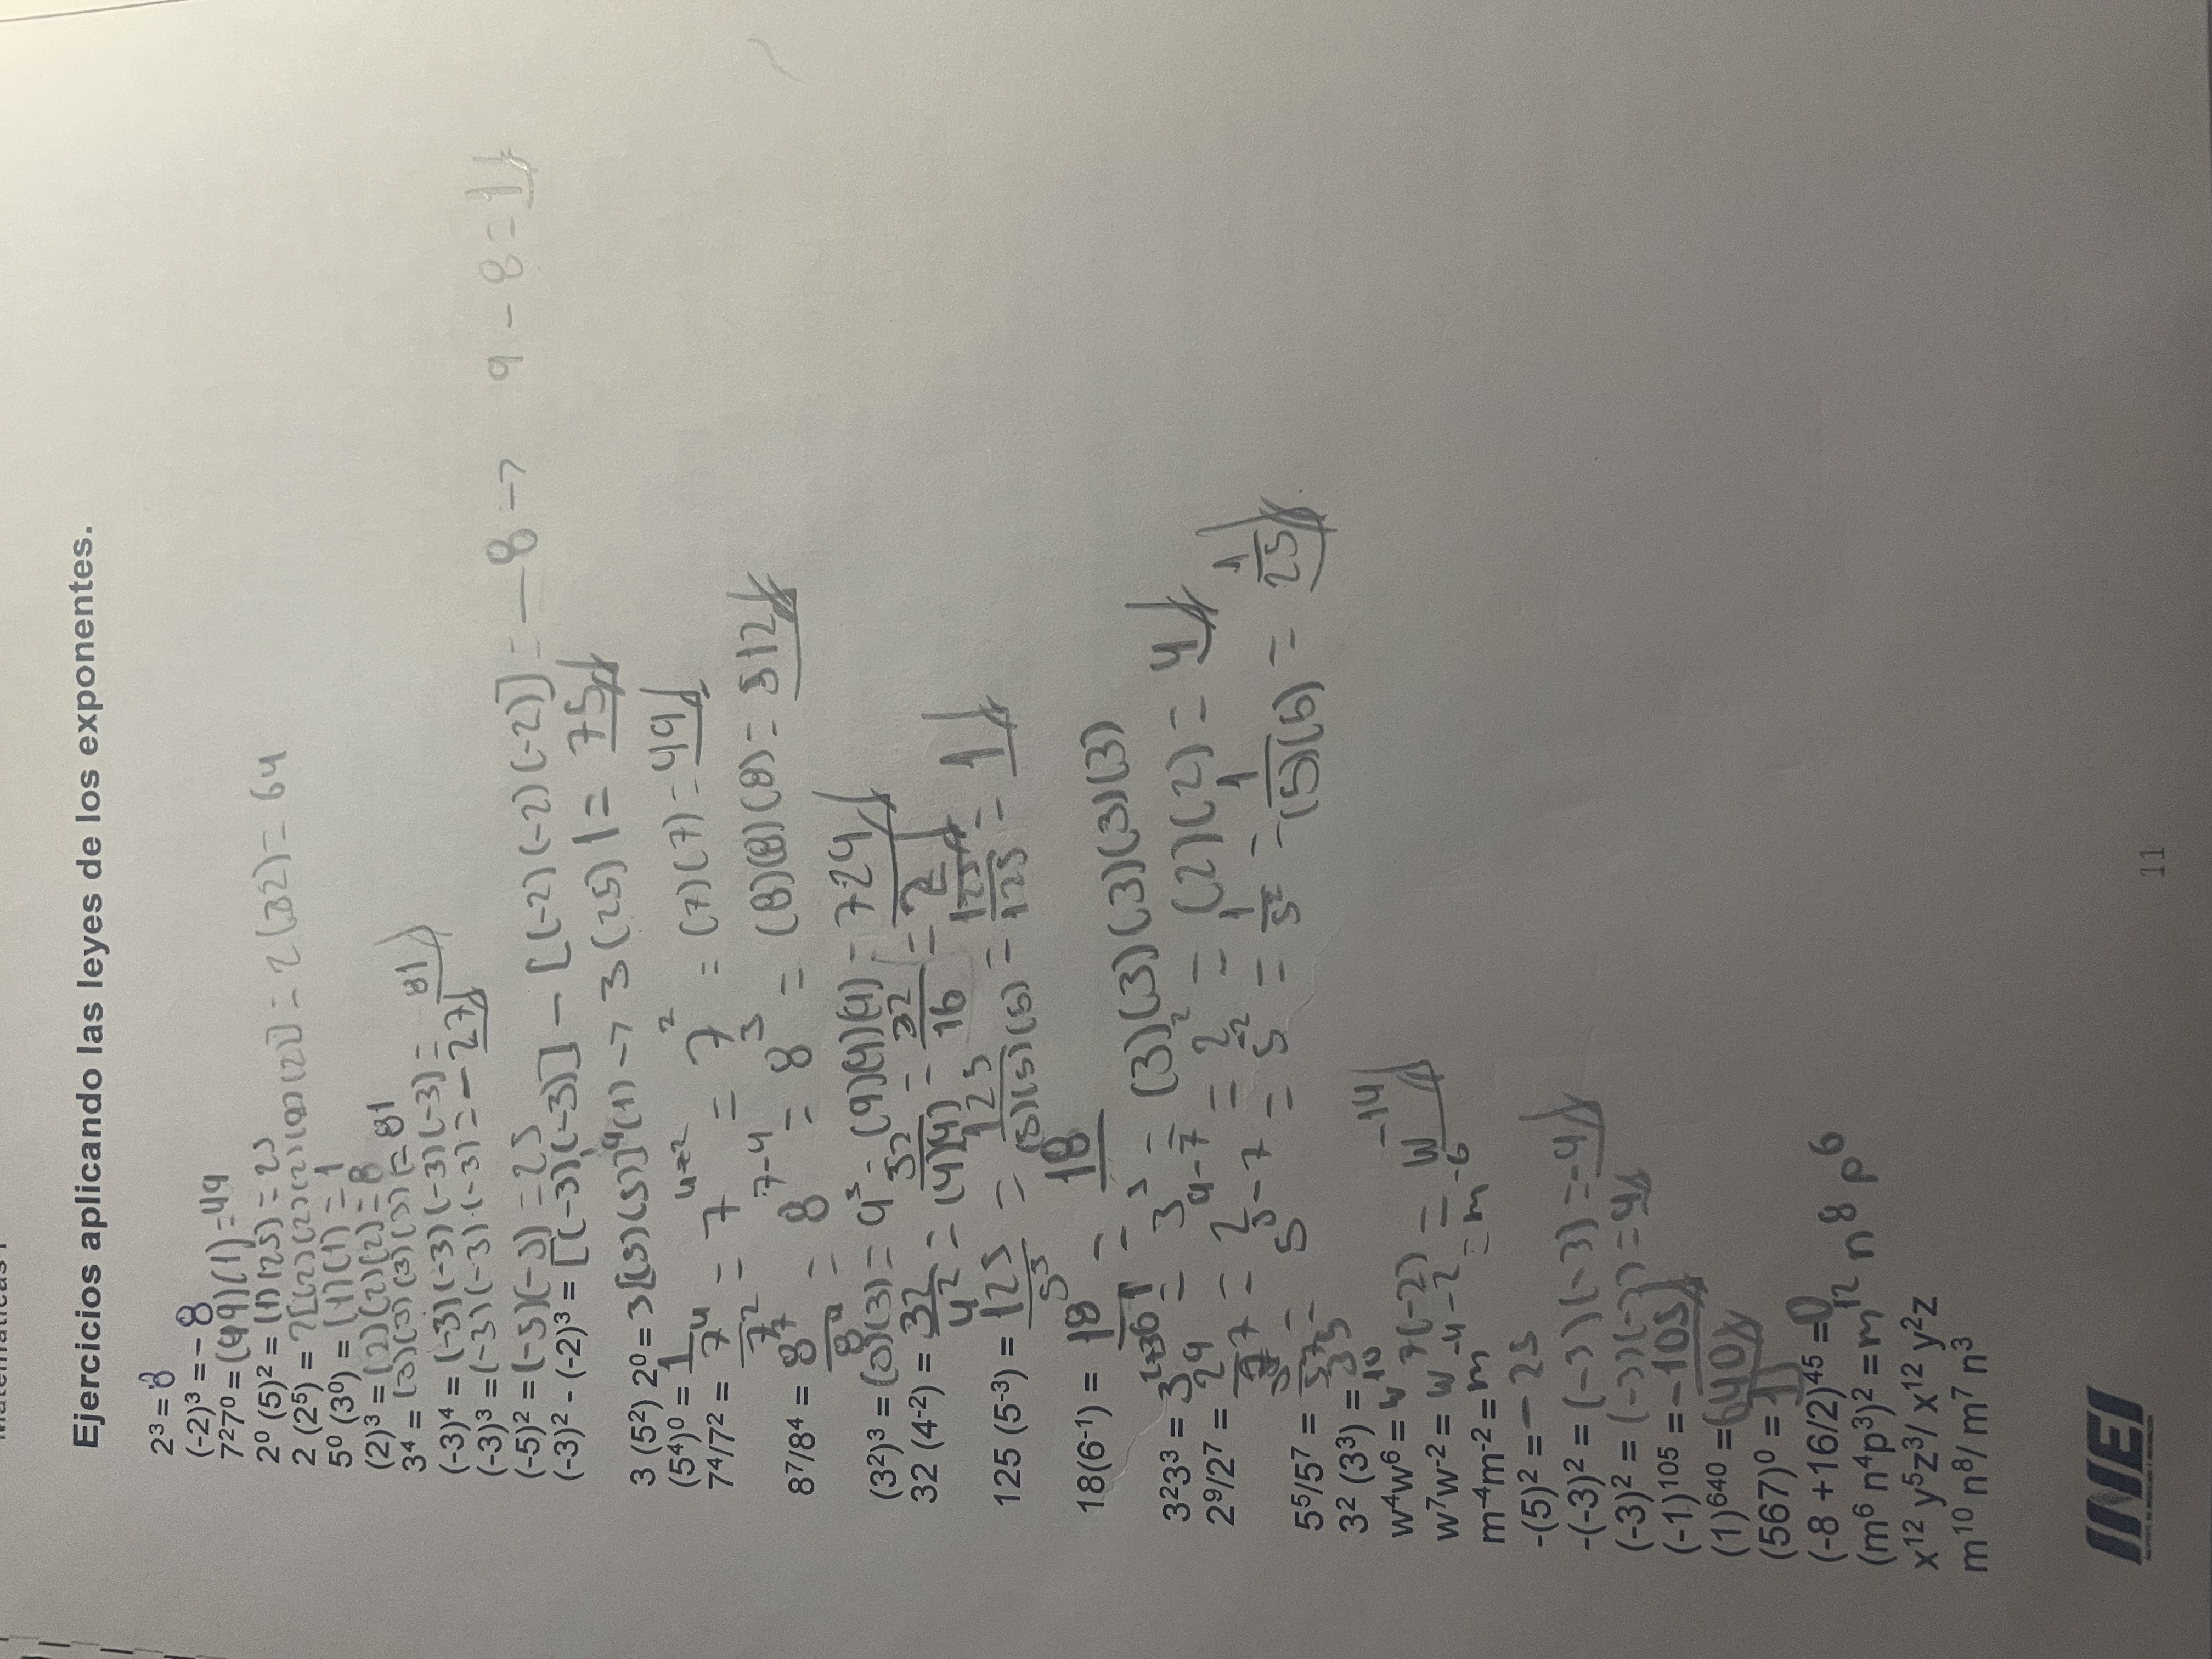 Ejercicios aplicando las leyes de los exponentes.
2³ = 8
(-2)³ = - 8
7²7⁰ = (49)(1) = 49
2⁰ (5)² = (1)(25) = 25
2 (2⁵) = 2[(2)(2)(2)(2)(2)] = 2(32) = 64
5⁰ (3⁰) = (1)(1) = 1
(2)³ = (2)(2)(2) = 8
3⁴ = (3)(3)(3)(3) = 81
(-3)⁴ = (-3)(-3)(-3)(-3) = 81
(-3)³ = (-3)(-3)(-3) = -27
(-5)² = (-5)(-5) = 25
(-3)² - (-2)³ = [(-3)(-3)] - [(-2)(-2)(-2)] = -8 → 9 - 8 = 1
3 (5²) 2⁰ = 3[(5)(5)](1) → 3(25)1 = 75
(5⁴)⁰ = 1
7⁴/7² = 7⁴/7² = 7⁴⁻² = 7² = (7)(7) = 49
8⁷/8⁴ = 8⁷/8⁴ = 8⁷⁻⁴ = 8³ = (8)(8)(8) = 512
(3²)³ = (3)(3) = 9³ = (9)(9)(9) = 724
32 (4⁻²) = 32/4² = 32/(4)(4) = 32/16 = 2
125 (5⁻³) = 125/5³ = 125/(5)(5)(5) = 125/125 = 1
18(6⁻¹) = 18/6¹ = 18
3²3³ = 3²⁺³ = 3⁵ = (3)(3)(3)(3)(3)
2⁹/2⁷ = 2⁹/2⁷ = 2⁹⁻⁷ = 2² = (2)(2) = 4
5⁵/5⁷ = 5⁵/5⁷ = 5⁵⁻⁷ = 5⁻² = 1/5² = 1/(5)(5) = 1/25
3² (3³) = 3⁵
w⁴w⁶ = w¹⁰
w⁷w⁻² = w⁷⁽⁻²⁾ = w⁻¹⁴
m⁻⁴m⁻² = m⁻⁴⁻² = m⁻⁶
-(5)² = - 25
-(-3)² = (-3)(-3) = -9
(-3)² = (-3)(-3) = 9
(-1)¹⁰⁵ = -105
(1)⁶⁴⁰ = 640
(567)⁰ = 1
(-8 +16/2)⁴⁵ = 0
(m⁶ n⁴p³)² = m¹² n⁸ p⁶
x¹² y⁵z³/ x¹² y²z
m¹⁰ n⁸/ m⁷ n³
INEI
11